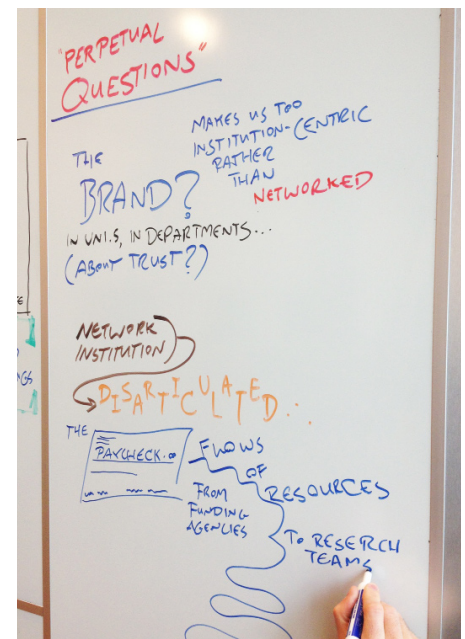 "PERPETUAL
QUESTIONS"
MAKES US TOO
INSTITUTION-CENTRIC
RATHER
THAN
NETWORKED
THE
BRAND?
IN UNI.S, IN DEPARTMENTS...
(ABOUT TRUST?)
NETWORK
INSTITUTION
DISARTICULATED...
THE
PAYCHECK.00
FLOWS
OF
RESOURCES
FROM
FUNDING
AGENCIES
TO RESERCH
TEAMS
GS